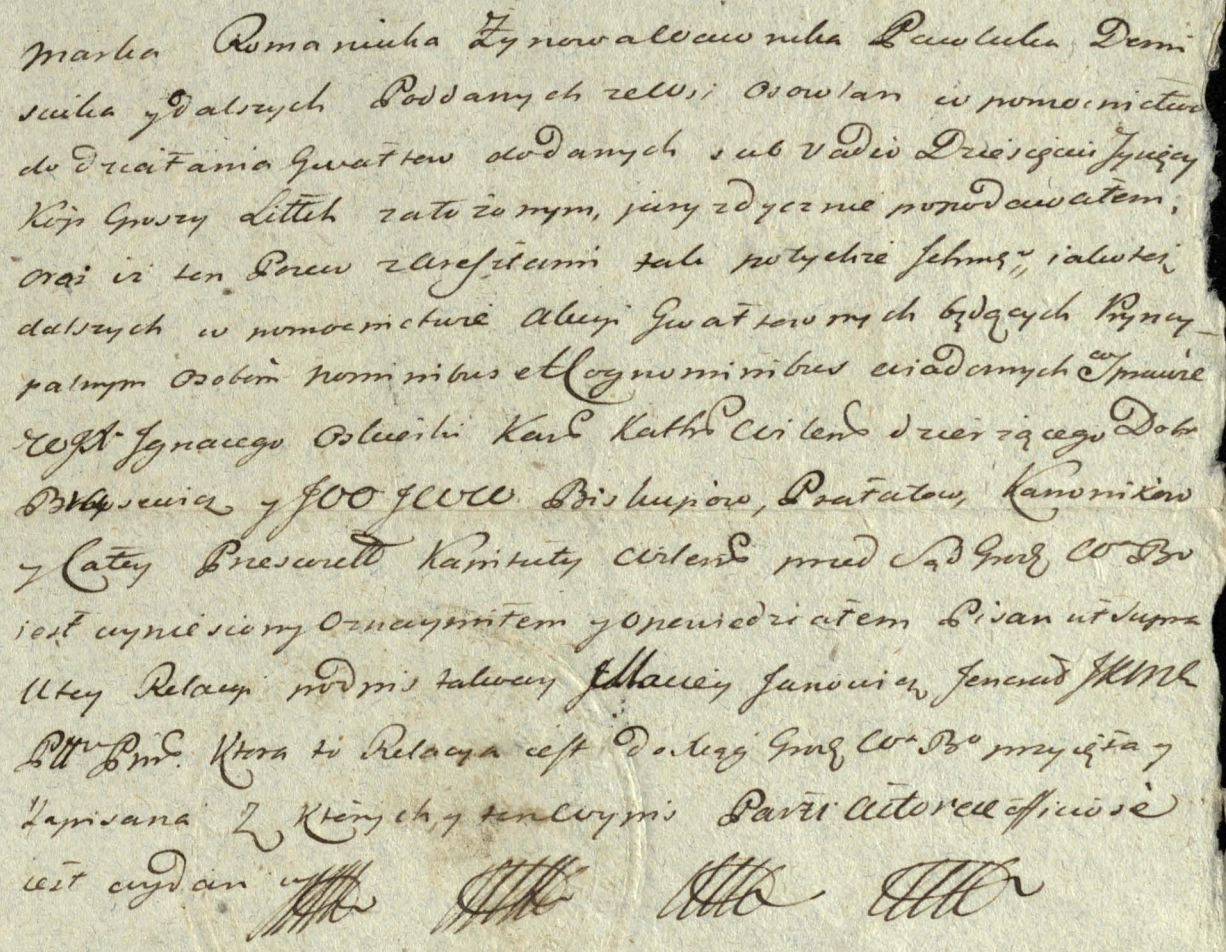 Marka Romaniuka Zynowa Ławnika Pawluka Demi
ściuka y dalszych Poddanych ze Wsi Osowlan w pomocnictwo
do działania Gwałtow dodanych sub Vadio Dziesięciu Tysięcy
Kop Groszy Littch załozonym, jurydycznie popodawałem,
oraz iz ten Pozew z Aresztami tak potyckie jakotez
dalszych w pomocnictwie Akcyi Gwałtownych będących Pryncy_
palnym Osobom nominibus et Cognominibus wiadomych w Sprawie
Ignacego Oskierki Kan Kath Wilens dzierzącego Dobr
y JOO JWW Biskupów, Prałatow, Kanonikow
y Całey Przeswett Kapituły Wilens przed Sąd Grodz Wa Bo
iest wyniesiony Oznaymiłem y opowiedziałem Pisan ut supra
U tey Relacyi podpis takowy Maciey Janowicz Jenerał JKMCi
Pttu Pins. Ktora to Relacya iest do Xiąg Grodz Wa Bo przyięta y
Zapisana Z Których y ten Wypis Parti Actoreae officiose
iest wydan